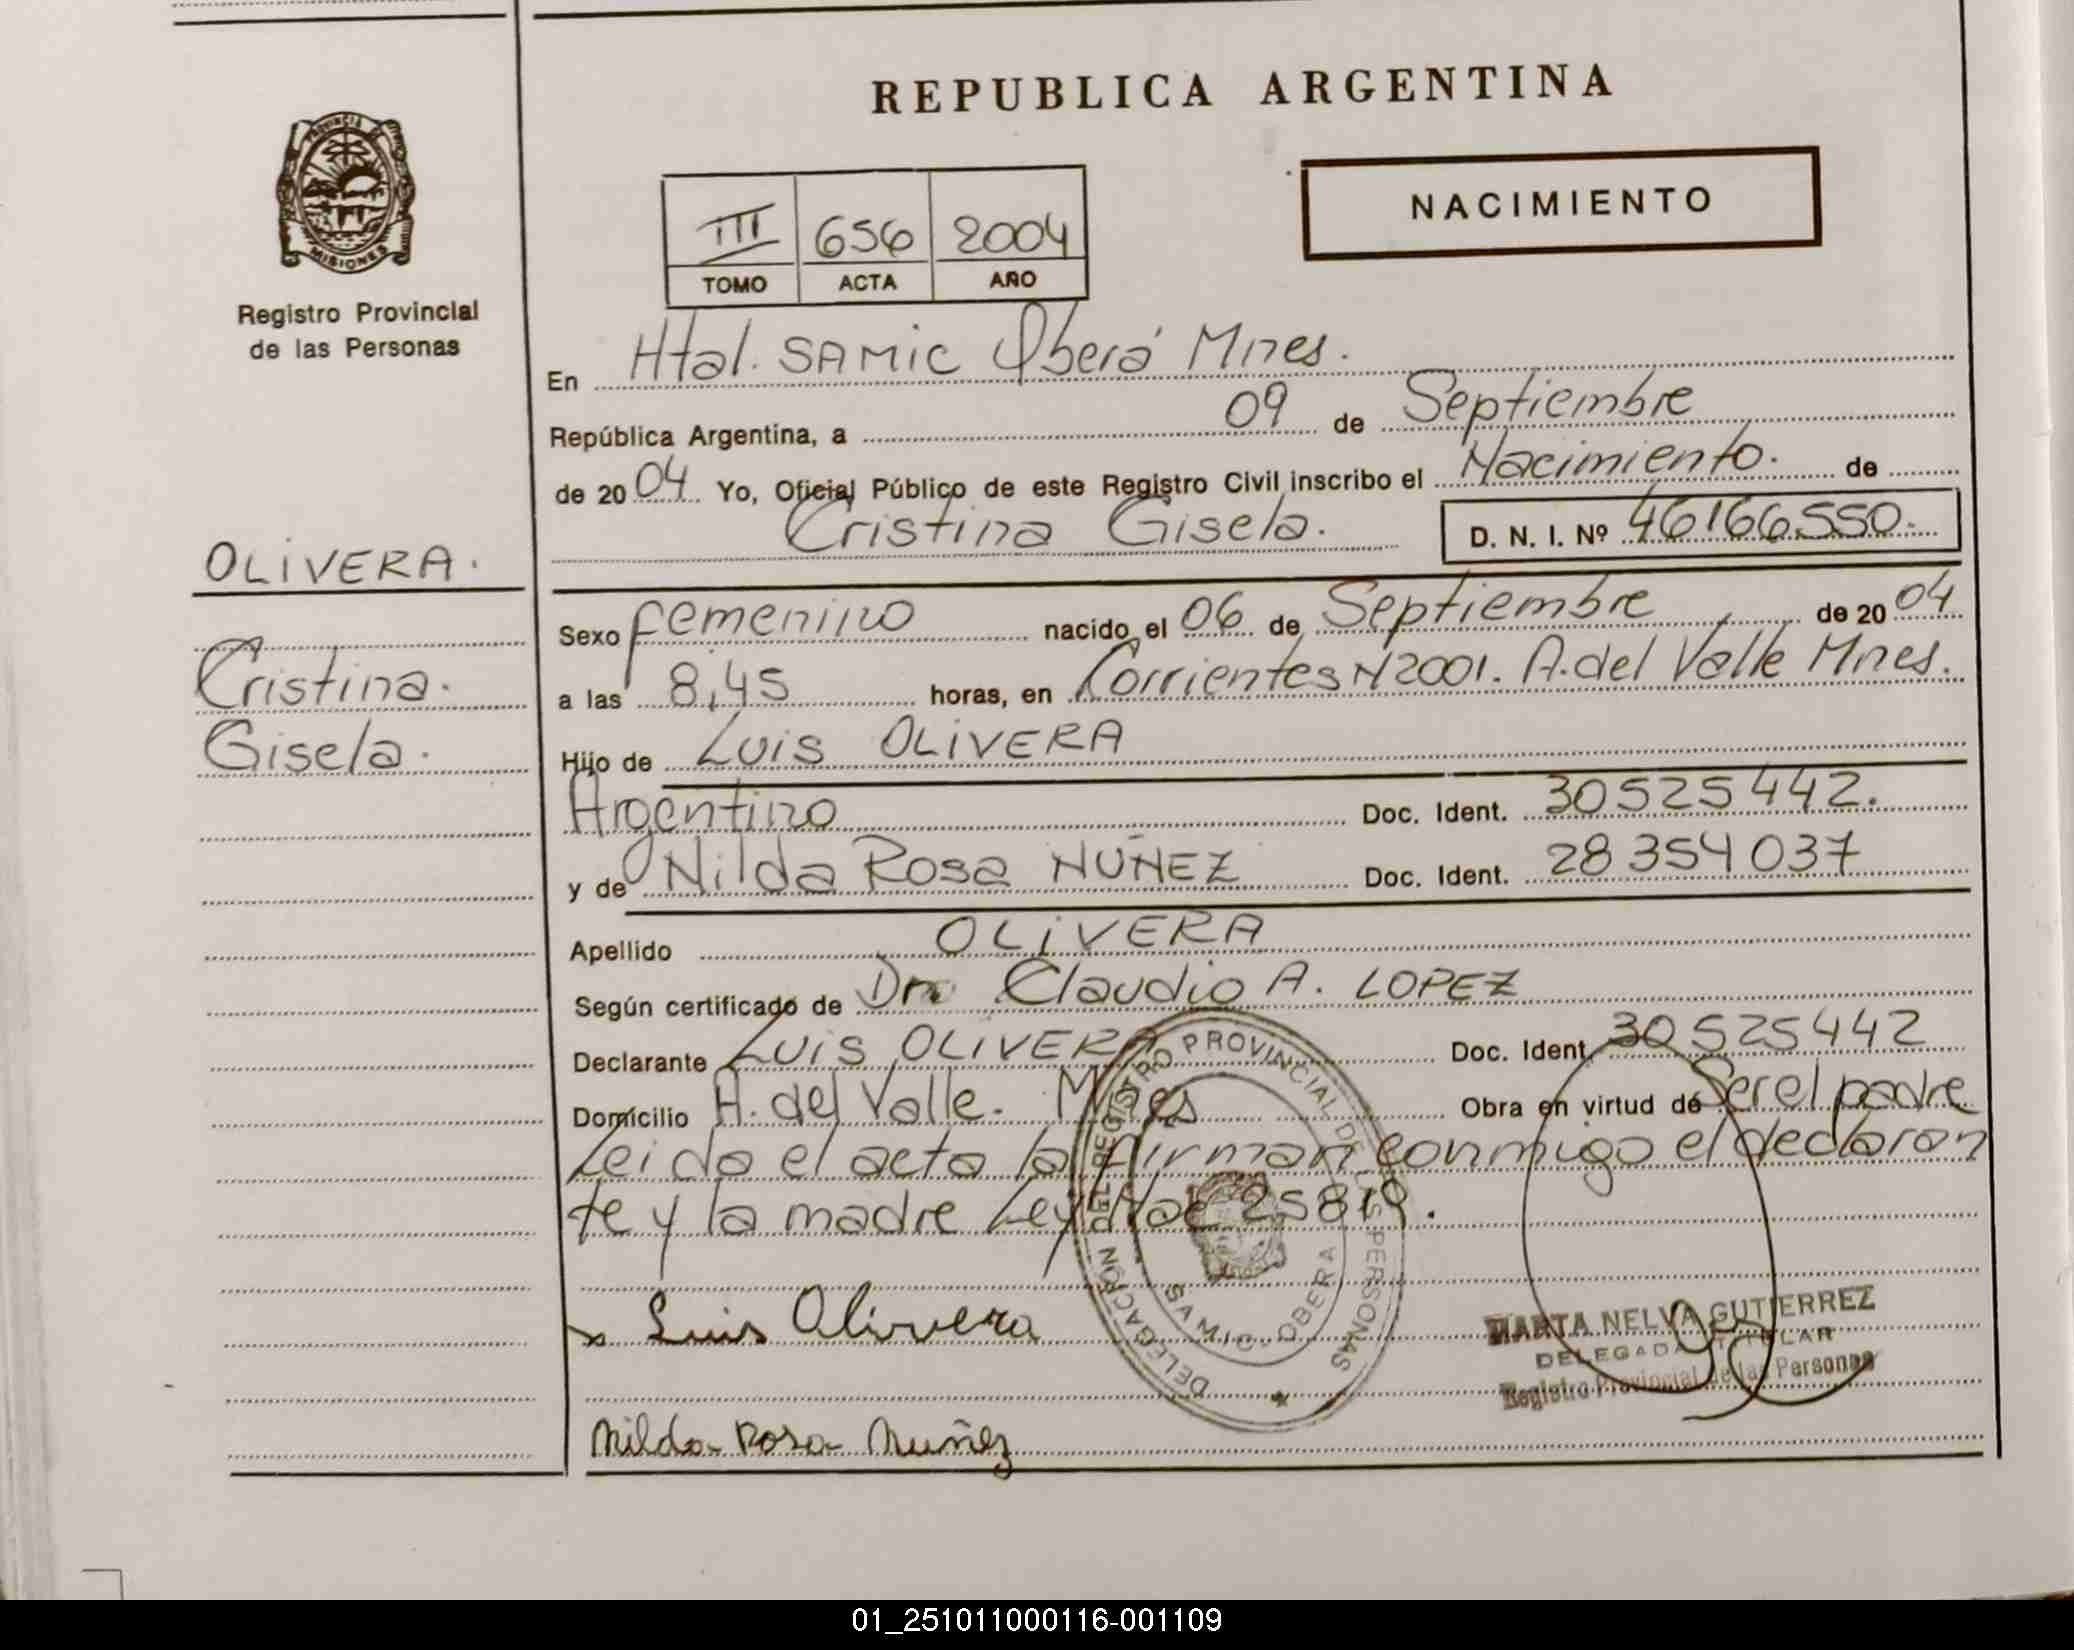 REPUBLICA ARGENTINA
PROVINCIA DE
MISIONES
Registro Provincial
de las Personas
NACIMIENTO
III 656 2004
TOMO ACTA AÑO
En Htal. SAMIC Oberá Mnes.
República Argentina, a 09 de Septiembre
de 2004 Yo, Oficial Público de este Registro Civil inscribo el Nacimiento. de
Cristina Gisela. D. N. I. Nº 46166550.
OLIVERA.
Cristina.
Gisela.
Sexo femenino nacido el 06 de Septiembre de 2004
a las 8,45 horas, en Corrientes N2001. A. del Valle Mnes.
Hijo de Luis OLIVERA
Argentino Doc. Ident. 30525442.
y de Nilda Rosa NUÑEZ Doc. Ident. 28354037
Apellido OLIVERA
Según certificado de Claudio A. LOPEZ
Declarante Luis OLIVERA Doc. Ident. 30525442
Domicilio A. del Valle. Mnes Obra en virtud de Ser el padre
Leida el acta la firman conmigo el declaran
te y la madre Ley 25819.
Luis Olivera
Nilda Rosa Nuñez
DELEGACIÓN DEL REGISTRO PROVINCIAL DE LAS PERSONAS
SAMIC - OBERA
MARTA NELVA GUTIERREZ
DELEGADA TITULAR
Registro Provincial de las Personas
01_251011000116-001109